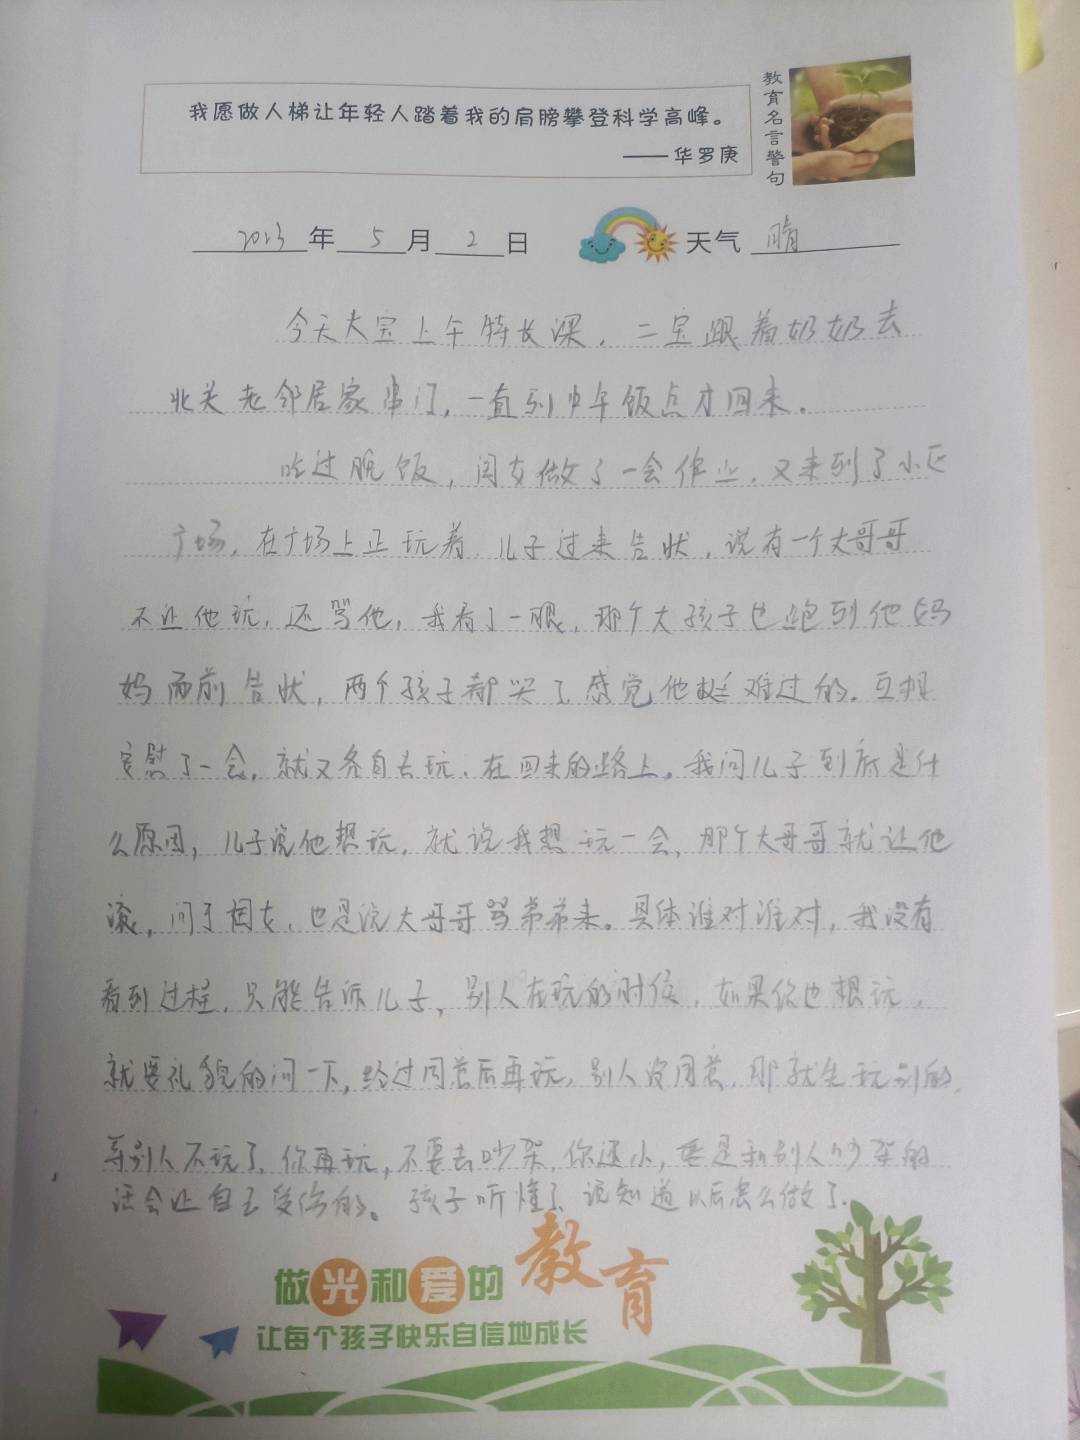 我愿做人梯让年轻人踏着我的肩膀攀登科学高峰。
——华罗庚
教育名言警句
2023年5月2日 天气 晴
今天大宝上午特长课，二宝跟着奶奶去
北关老邻居家串门，一直到中午饭点才回来。
吃过晚饭，闺女做了一会作业，又来到了小区
广场，在广场上正玩着，儿子过来告状，说有一个大哥哥
不让他玩，还骂他，我看了一眼，那个大孩子也跑到他妈
妈面前告状，两个孩子都哭了，感觉他挺难过的。互相
安慰了一会，就又各自去玩，在回来的路上，我问儿子到底是什
么原因，儿子说他想玩，就说我想玩一会，那个大哥哥就让他
滚，问了闺女，也是说大哥哥骂弟弟来。具体谁对谁对，我没有
看到过程，只能告诉儿子，别人在玩的时候，如果你也想玩，
就要礼貌的问一下，经过同意后再玩，别人没同意，那就先玩别的，
等别人不玩了，你再玩，不要去吵架，你还小，要是和别人吵架的
话会让自己受伤的。孩子听懂了，说知道以后怎么做了。
做光和爱的教育
让每个孩子快乐自信地成长